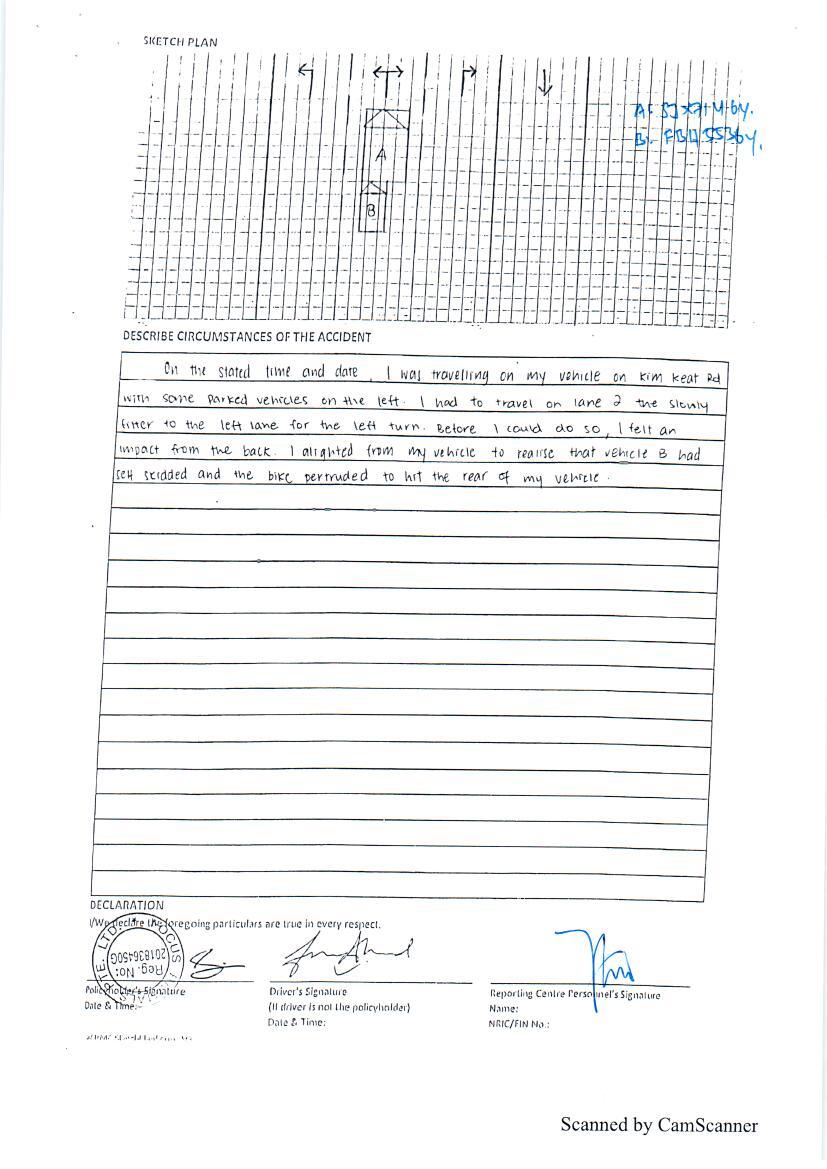 SKETCH PLAN
A
B
A:
B:
DESCRIBE CIRCUMSTANCES OF THE ACCIDENT
On the stated time and date, I was travelling on my vehicle on Kim Keat Rd
with some parked vehicles on the left. I had to travel on lane 2 the slowly
filter to the left lane for the left turn. Before I could do so, I felt an
impact from the back. I alighted from my vehicle to realise that vehicle B had
self skidded and the bike pertruded to hit the rear of my vehicle.
DECLARATION
I/We declare the foregoing particulars are true in every respect.
Reg. No: 201836450G
Policyholder's Signature
Date & Time:
Driver's Signature
(If driver is not the policyholder)
Date & Time:
Reporting Centre Personnel's Signature
Name:
NRIC/FIN No.:
Scanned by CamScanner